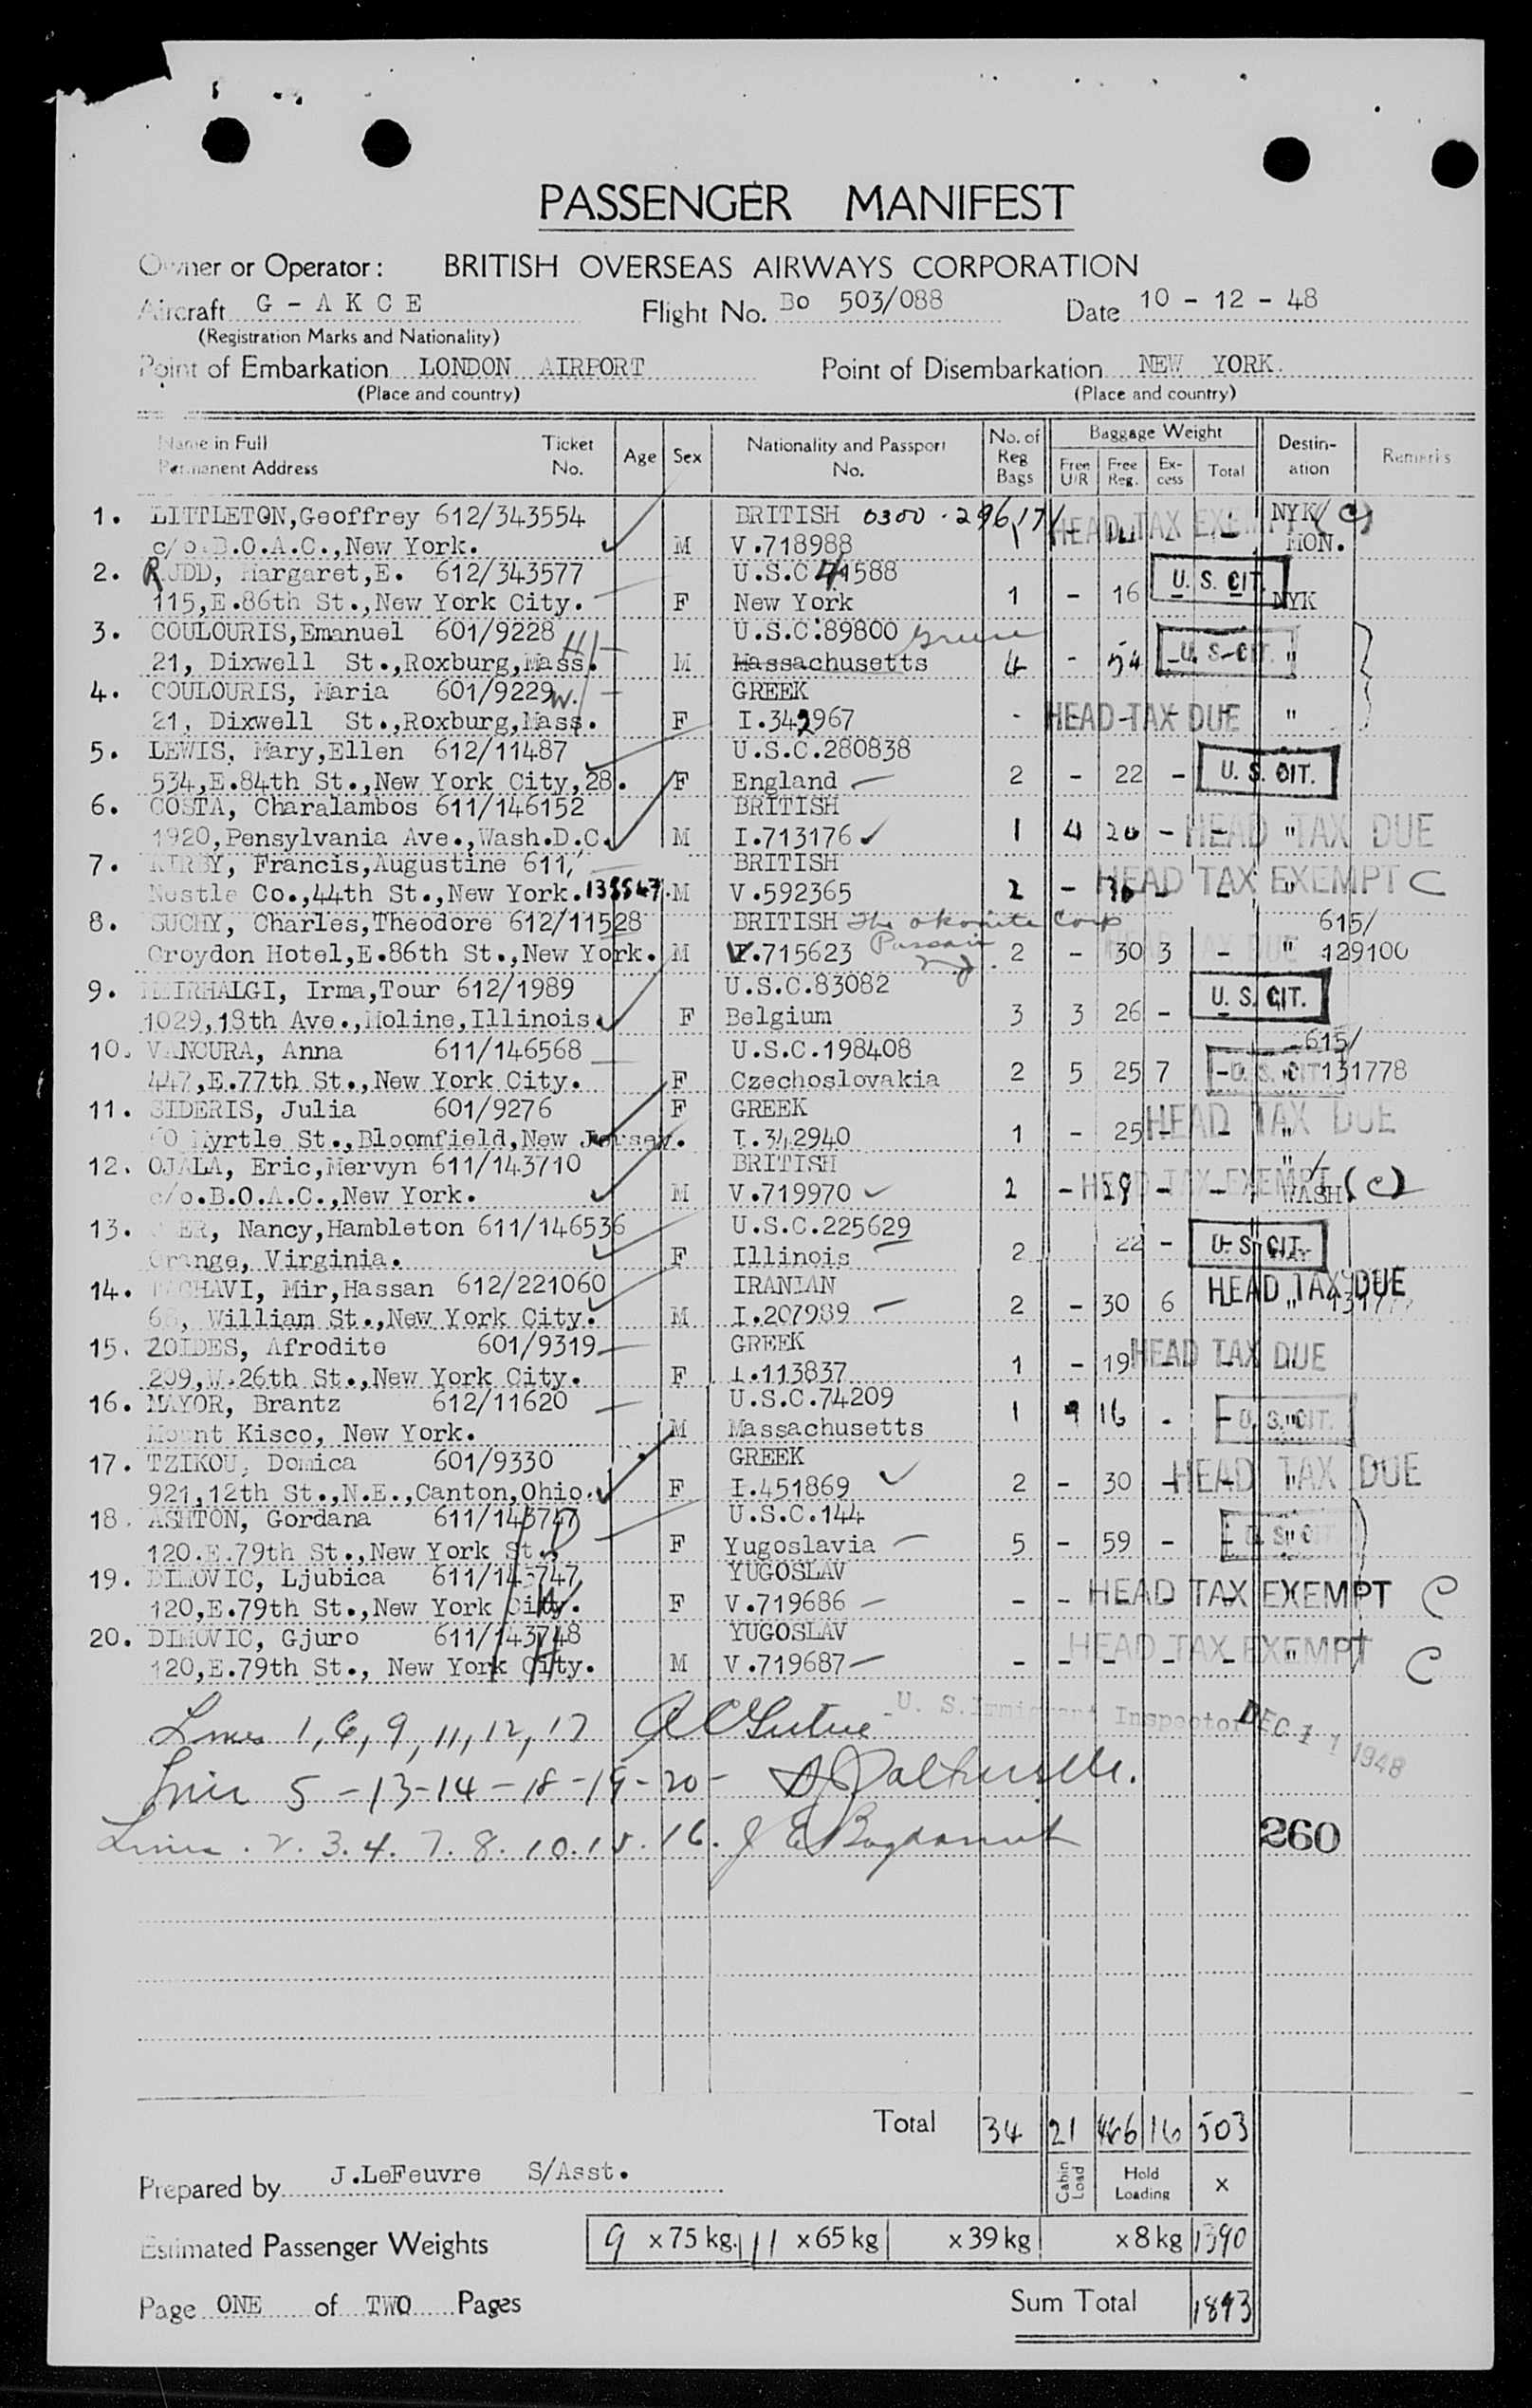 PASSENGER MANIFEST
Owner or Operator: BRITISH OVERSEAS AIRWAYS CORPORATION
Aircraft G - A K C E Flight No. Bo 503/088 Date 10 - 12 - 48
(Registration Marks and Nationality)
Point of Embarkation LONDON AIRPORT Point of Disembarkation NEW YORK.
(Place and country) (Place and country)
Name in Full Permanent Address Ticket No. Age Sex Nationality and Passport No. No. of Reg Bags Baggage Weight Free U/R Free Reg. Excess Total Destination Remarks
1. LITTLETON,Geoffrey 612/343554 BRITISH 0300 HEAD TAX EXEMPT NYK/ (C)
c/o.B.O.A.C.,New York. M V.718988 1 MON.
2. RUDD, Margaret,E. 612/343577 U.S.C 41588 U. S. CIT.
115,E.86th St.,New York City. F New York 1 - 16 NYK
3. COULOURIS,Emanuel 601/9228 H U.S.C.89800
21, Dixwell St.,Roxburg,Mass. M Massachusetts 4 - 54 U. S. CIT. "
4. COULOURIS, Maria 601/9229 W. GREEK
21, Dixwell St.,Roxburg,Mass. F I.342967 - HEAD TAX DUE "
5. LEWIS, Mary,Ellen 612/11487 U.S.C.280838
534,E.84th St.,New York City,28. F England 2 - 22 - U. S. CIT.
6. COSTA, Charalambos 611/146152 BRITISH
1920,Pensylvania Ave.,Wash.D.C. M I.713176 1 4 20 - HEAD TAX DUE "
7. KIRBY, Francis,Augustine 611/ BRITISH
Nestle Co.,44th St.,New York.138547. M V.592365 2 - 30 - HEAD TAX EXEMPT " C
8. SUCHY, Charles,Theodore 612/11528 BRITISH The Okonite Corp 615/
Croydon Hotel,E.86th St.,New York. M V.715623 Passaic NJ. 2 - 30 3 - " 129100
9. MEIRHALGI, Irma,Tour 612/1989 U.S.C.83082 U. S. CIT.
1029,18th Ave.,Moline,Illinois. F Belgium 3 3 26 -
10. VANCURA, Anna 611/146568 U.S.C.198408 615/
447,E.77th St.,New York City. F Czechoslovakia 2 5 25 7 - U. S. CIT. 131778
11. SIDERIS, Julia 601/9276 F GREEK
60 Myrtle St.,Bloomfield,New Jersey. I.342940 1 - 25 - HEAD TAX DUE "
12. OJALA, Eric,Mervyn 611/143710 BRITISH "/
c/o.B.O.A.C.,New York. M V.719970 2 - 19 - - HEAD TAX EXEMPT WASH (C)
13. Nancy,Hambleton 611/146536 U.S.C.225629
Orange, Virginia. F Illinois 2 22 - U. S. CIT.
14. Mir,Hassan 612/221060 IRANIAN HEAD TAX DUE
William St.,New York City. M I.207989 2 - 30 6 "
15. ZOIDES, Afrodite 601/9319 GREEK
209,W.26th St.,New York City. F I.113837 1 - 19 HEAD TAX DUE
16. MAYOR, Brantz 612/11620 U.S.C.74209
Mount Kisco, New York. M Massachusetts 1 9 16 - - U. S. CIT. "
17. TZIKOU, Domica 601/9330 GREEK
921,12th St.,N.E.,Canton,Ohio. F I.451869 2 - 30 - HEAD TAX DUE "
18. ASHTON, Gordana 611/143747 U.S.C.144
120.E.79th St.,New York St. F Yugoslavia 5 - 59 - - U. S. CIT. "
19. DIMOVIC, Ljubica 611/143747 YUGOSLAV
120,E.79th St.,New York City. F V.719686 - - HEAD TAX EXEMPT C
20. DIMOVIC, Gjuro 611/143748 YUGOSLAV
120,E.79th St., New York City. M V.719687 - - - - - HEAD TAX EXEMPT " C
Lines 1, 6, 9, 11, 12, 17 U. S. Immigrant Inspector DEC 11 1948
Lines 5 - 13 - 14 - 18 - 19 - 20 -
Lines . 2. 3. 4. 7. 8. 10. 15. 16. 260
Total 34 21 466 16 503
Prepared by J.LeFeuvre S/Asst. Cabin Load Hold Loading x
Estimated Passenger Weights 9 x 75 kg. 11 x 65 kg x 39 kg x 8 kg 1390
Page ONE of TWO Pages Sum Total 1893